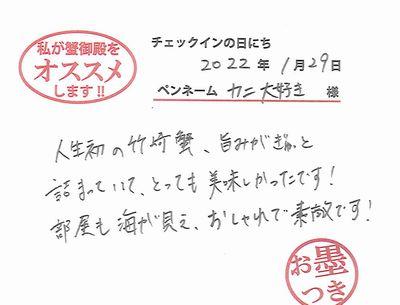 私が蟹御殿を
オススメ
します!!
チェックインの日にち
2022年 1月29日
ペンネーム カニ大好き 様
人生初の竹崎蟹、旨みがぎゅっと
詰まっていて、とっても美味しかったです!
部屋も海が見え、おしゃれで素敵です!
お墨
つき